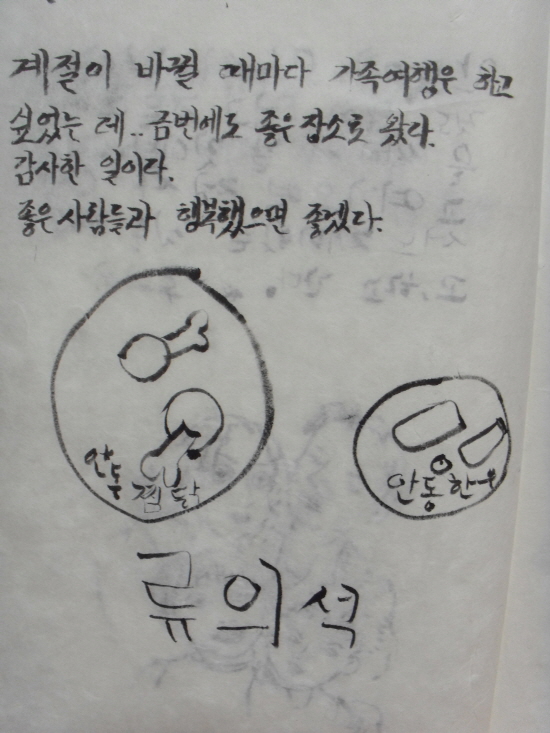 계절이 바뀔 때마다 가족여행은 하고
싶었는데.. 금번에도 좋은 장소로 왔다.
감사한 일이다.
좋은 사람들과 행복했으면 좋겠다.
안동
찜닭
안동한우
류의석